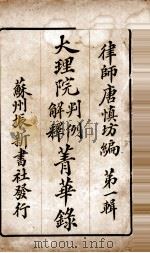 律師唐慎坊編 第一輯
大理院判例解釋菁華錄
蘇州振新書社發行
www.mtoou.info